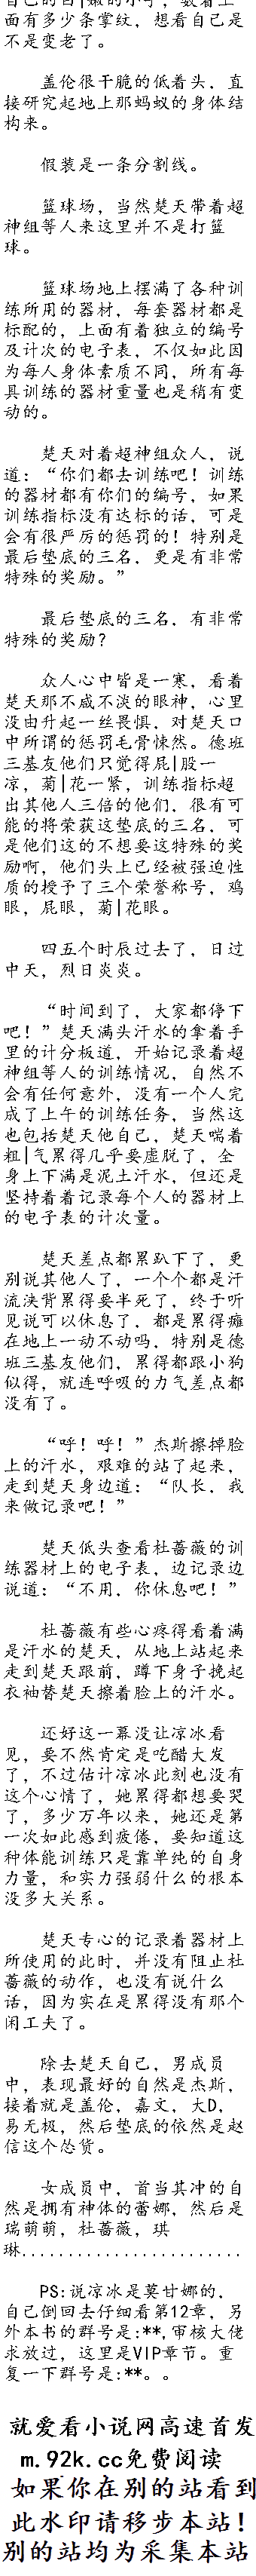 自己的白|嫩的小手，数着上
面有多少条掌纹，想看自己是
不是变老了。
盖伦很干脆的低着头，直
接研究起地上那蚂蚁的身体结
构来。
假装是一条分割线。
篮球场，当然楚天带着超
神组等人来这里并不是打篮
球。
篮球场地上摆满了各种训
练所用的器材，每套器材都是
标配的，上面有着独立的编号
及计次的电子表，不仅如此因
为每人身体素质不同，所有每
具训练的器材重量也是稍有变
动的。
楚天对着超神组众人，说
道：“你们都去训练吧！训练
的器材都有你们的编号，如果
训练指标没有达标的话，可是
会有很严厉的惩罚的！特别是
最后垫底的三名，更是有非常
特殊的奖励。”
最后垫底的三名，有非常
特殊的奖励？
众人心中皆是一寒，看着
楚天那不咸不淡的眼神，心里
没由升起一丝畏惧，对楚天口
中所谓的惩罚毛骨悚然。德班
三基友他们只觉得屁|股一
凉，菊|花一紧，训练指标超
出其他人三倍的他们，很有可
能的将荣获这垫底的三名，可
是他们这的不想要这特殊的奖
励啊，他们头上已经被强迫性
质的授予了三个荣誉称号，鸡
眼，屁眼，菊|花眼。
四五个时辰过去了，日过
中天，烈日炎炎。
“时间到了，大家都停下
吧！”楚天满头汗水的拿着手
里的计分板道，开始记录着超
神组等人的训练情况，自然不
会有任何意外，没有一个人完
成了上午的训练任务，当然这
也包括楚天他自己，楚天喘着
粗|气累得几乎要虚脱了，全
身上下满是泥土汗水，但还是
坚持着着记录每个人的器材上
的电子表的计次量。
楚天差点都累趴下了，更
别说其他人了，一个个都是汗
流浃背累得要半死了，终于听
见说可以休息了，都是累得瘫
在地上一动不动吗，特别是德
班三基友他们，累得都跟小狗
似得，就连呼吸的力气差点都
没有了。
“呼！呼！”杰斯擦掉脸
上的汗水，艰难的站了起来，
走到楚天身边道：“队长，我
来做记录吧！”
楚天低头查看杜蔷薇的训
练器材上的电子表，边记录边
说道：“不用，你休息吧！”
杜蔷薇有些心疼得看着满
是汗水的楚天，从地上站起来
走到楚天跟前，蹲下身子挽起
衣袖替楚天擦着脸上的汗水。
还好这一幕没让凉冰看
见，要不然肯定是吃醋大发
了，不过估计凉冰此刻也没有
这个心情了，她累得都想要哭
了，多少万年以来，她还是第
一次如此感到疲倦，要知道这
种体能训练只是靠单纯的自身
力量，和实力强弱什么的根本
没多大关系。
楚天专心的记录着器材上
所使用的此时，并没有阻止杜
蔷薇的动作，也没有说什么
话，因为实在是累得没有那个
闲工夫了。
除去楚天自己，男成员
中，表现最好的自然是杰斯，
接着就是盖伦，嘉文，大D，
易无极，然后垫底的依然是赵
信这个怂货。
女成员中，首当其冲的自
然是拥有神体的蕾娜，然后是
瑞萌萌，杜蔷薇，琪
琳........................
PS:说凉冰是莫甘娜的，
自己倒回去仔细看第12章，另
外本书的群号是:**,审核大佬
求放过，这里是VIP章节。重
复一下群号是:**。。
就爱看小说网高速首发
m.92k.cc免费阅读
如果你在别的站看到
此水印请移步本站！
别的站均为采集本站